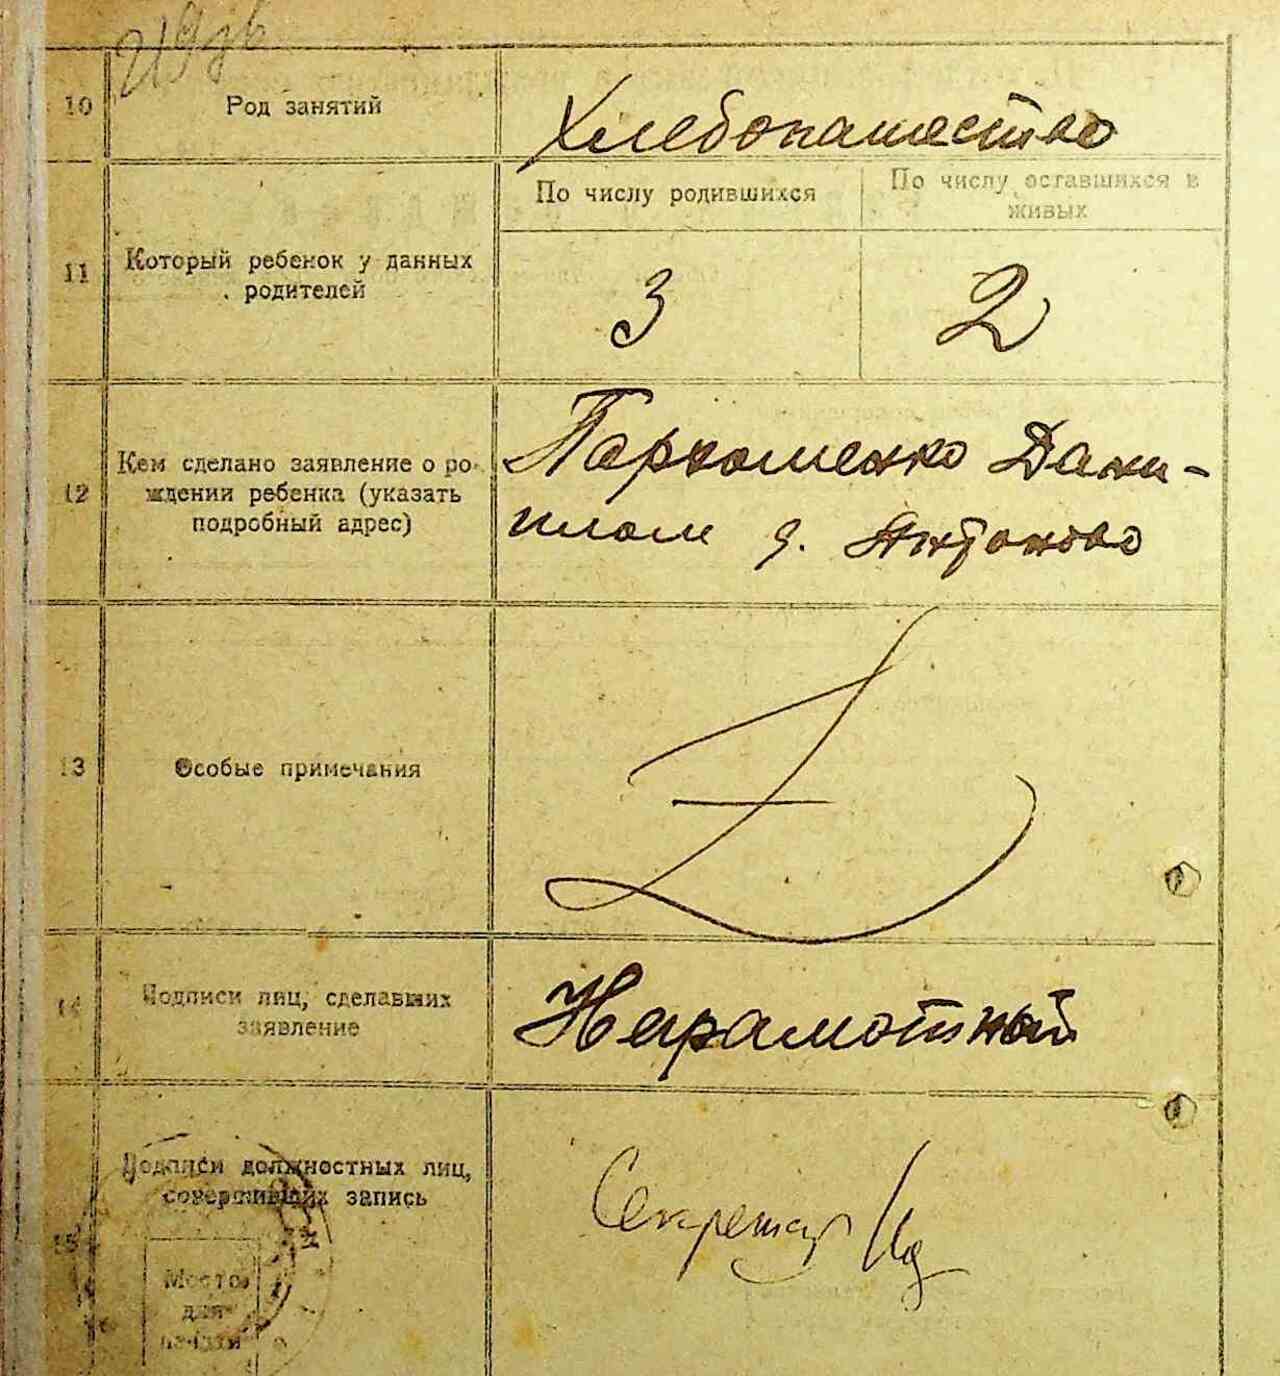 10
Род занятий
Хлебопашество
11
Который ребенок у данных
родителей
По числу родившихся
По числу оставшихся в
живых
3
2
12
Кем сделано заявление о ро-
ждении ребенка (указать
подробный адрес)
Пархоменко Дани-
илом д. Антоново
13
Особые примечания
14
Подписи лиц, сделавших
заявление
Неграмотный
15
Подписи должностных лиц,
совершивших запись
Секретар
Место
для
печати